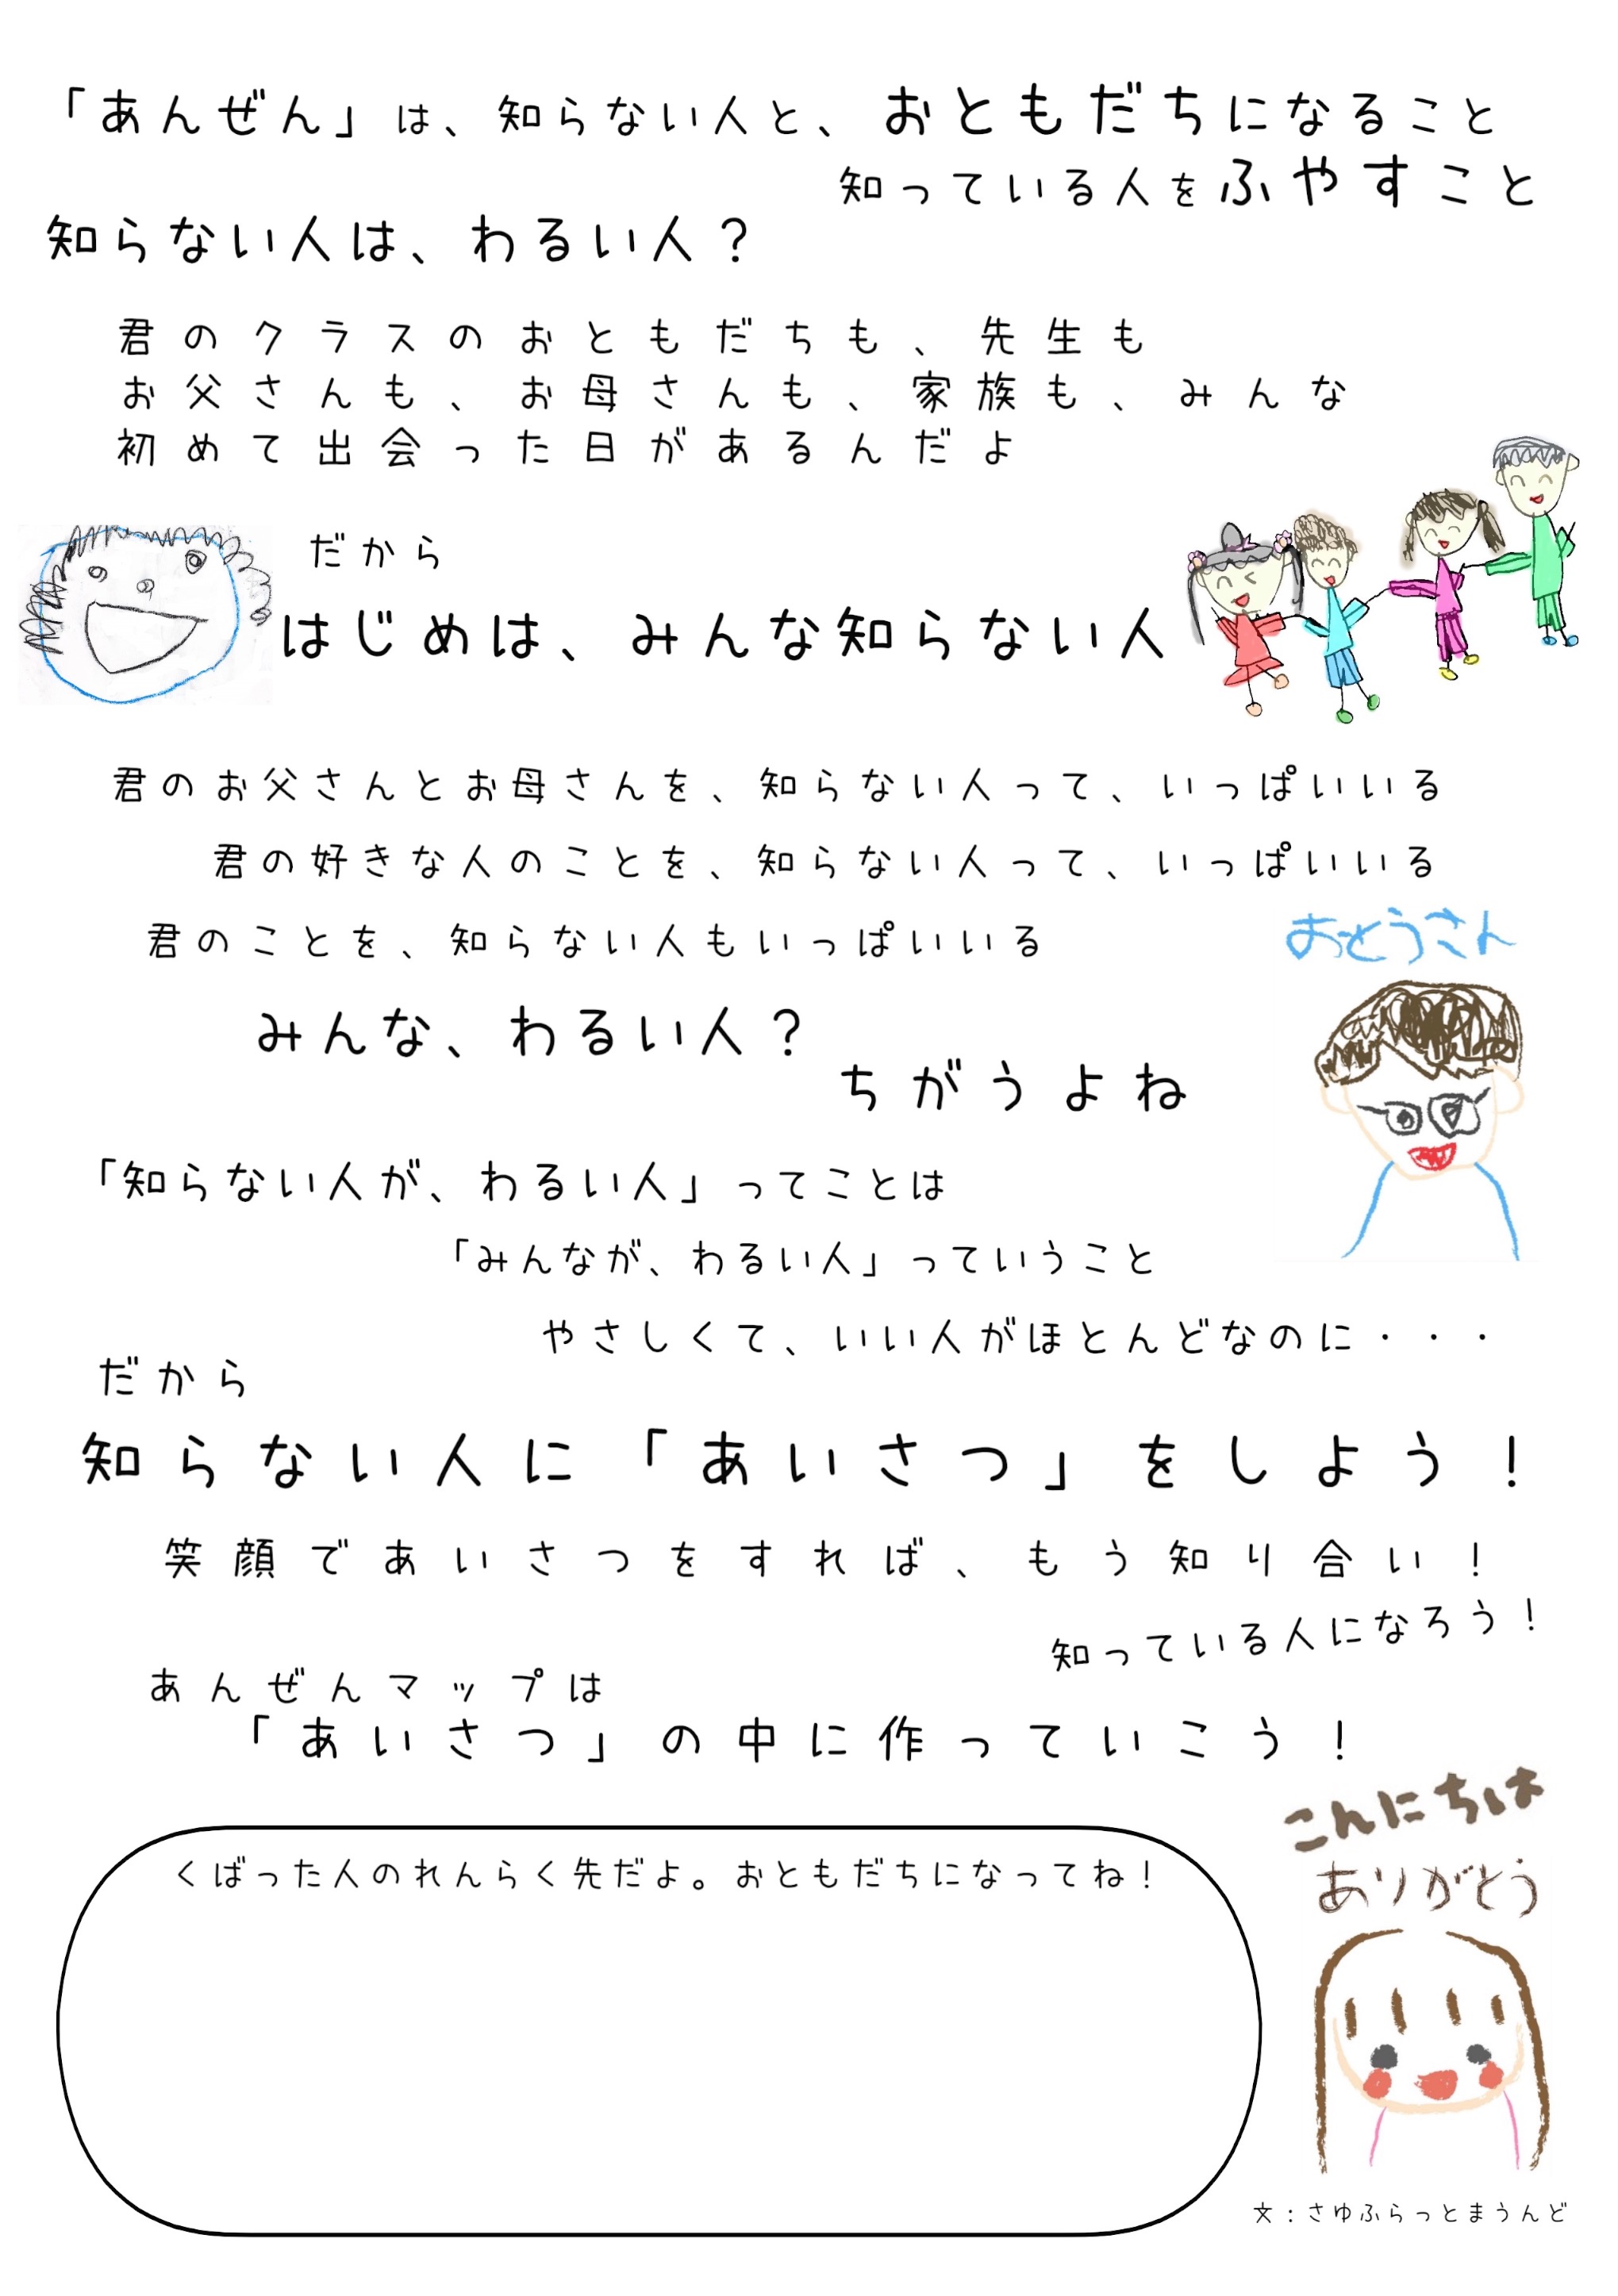 「あんぜん」は、知らない人と、おともだちになること
知っている人をふやすこと
知らない人は、わるい人？
君のクラスのおともだちも、先生も
お父さんも、お母さんも、家族も、みんな
初めて出会った日があるんだよ
だから
はじめは、みんな知らない人
君のお父さんとお母さんを、知らない人って、いっぱいいる
君の好きな人のことを、知らない人って、いっぱいいる
君のことを、知らない人もいっぱいいる
おとうさん
みんな、わるい人？
ちがうよね
「知らない人が、わるい人」ってことは
「みんなが、わるい人」っていうこと
やさしくて、いい人がほとんどなのに・・・
だから
知らない人に「あいさつ」をしよう！
笑顔であいさつをすれば、もう知り合い！
知っている人になろう！
あんぜんマップは
「あいさつ」の中に作っていこう！
こんにちは
ありがとう
くばった人のれんらく先だよ。おともだちになってね！
文：さゆふらっとまうんど